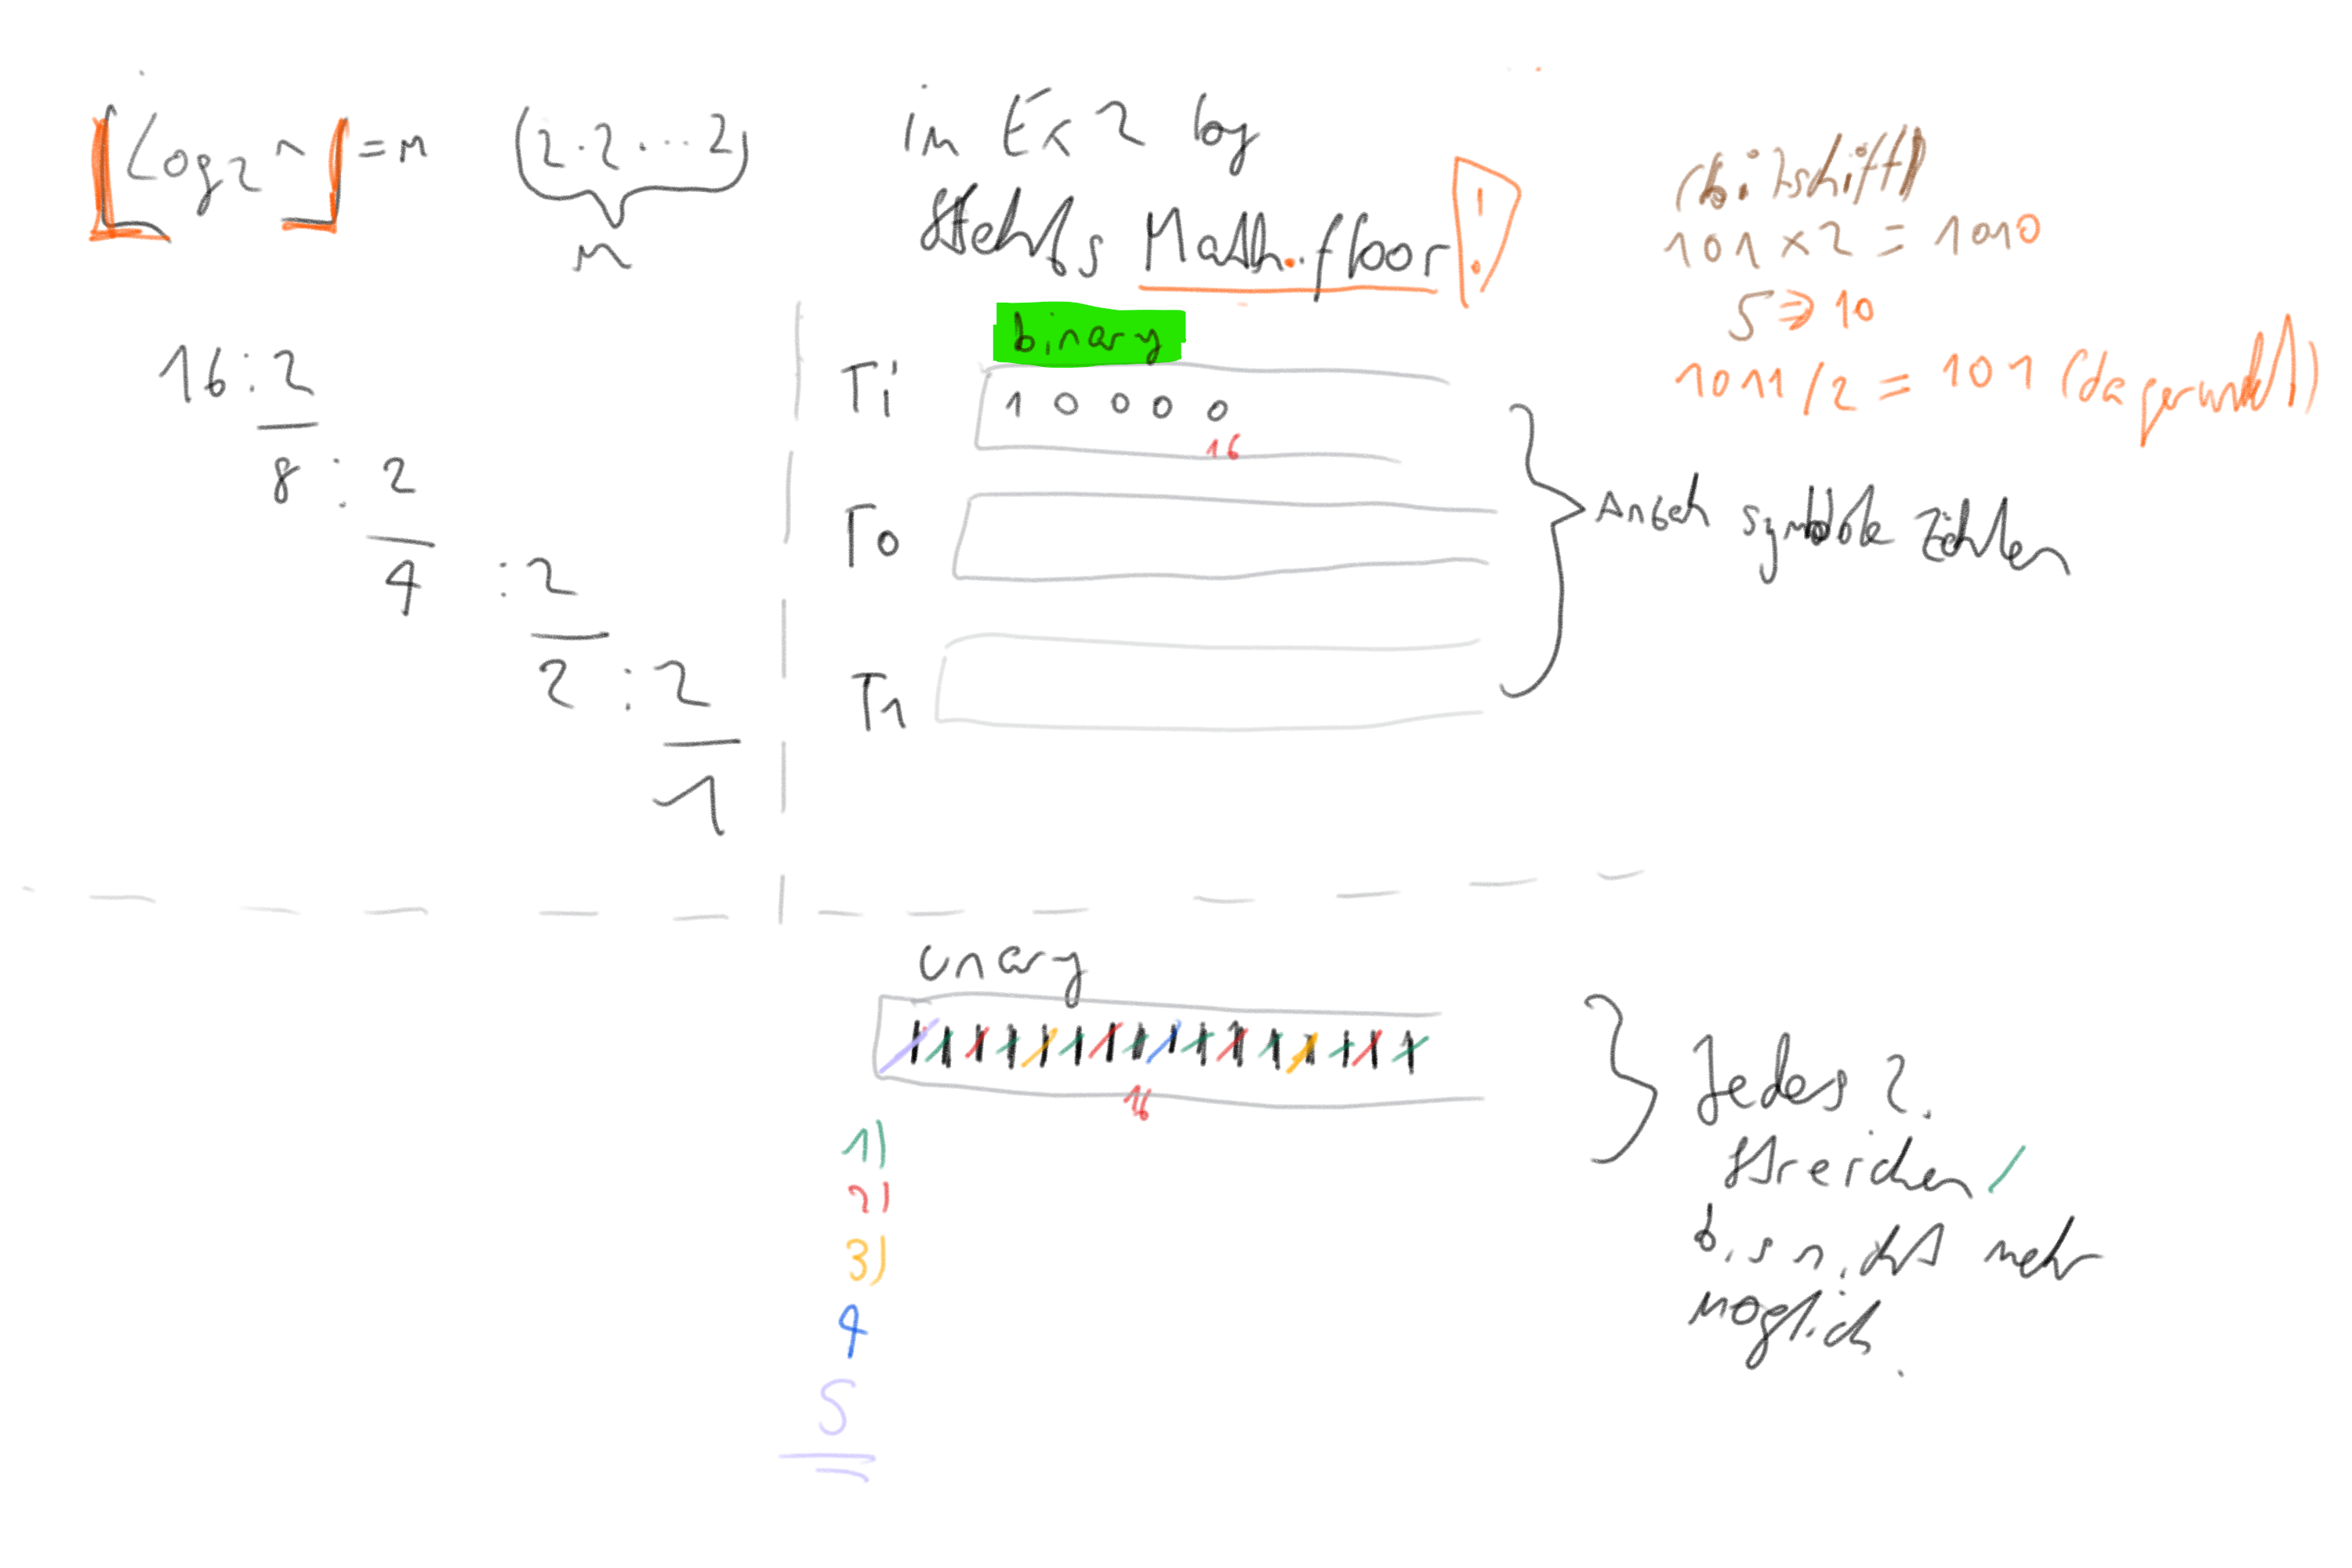 ⌊Log₂ n⌋ = m
(2·2·...2)
m
in Ex 2 log
stehts Math.floor !
(bitshift)
101 × 2 = 1010
5 ⇒ 10
1011/2 = 101 (da gerundet!)
16 : 2
8 : 2
4 : 2
2 : 2
1
binary
Ti 1 0 0 0 0
16
To
T1
symbole Zählen
unary
1 1 1 1 1 1 1 1 1 1 1 1 1 1 1 1
16
1)
2)
3)
4
5
Jedes 2.
streichen /
bis nicht mehr
möglich.